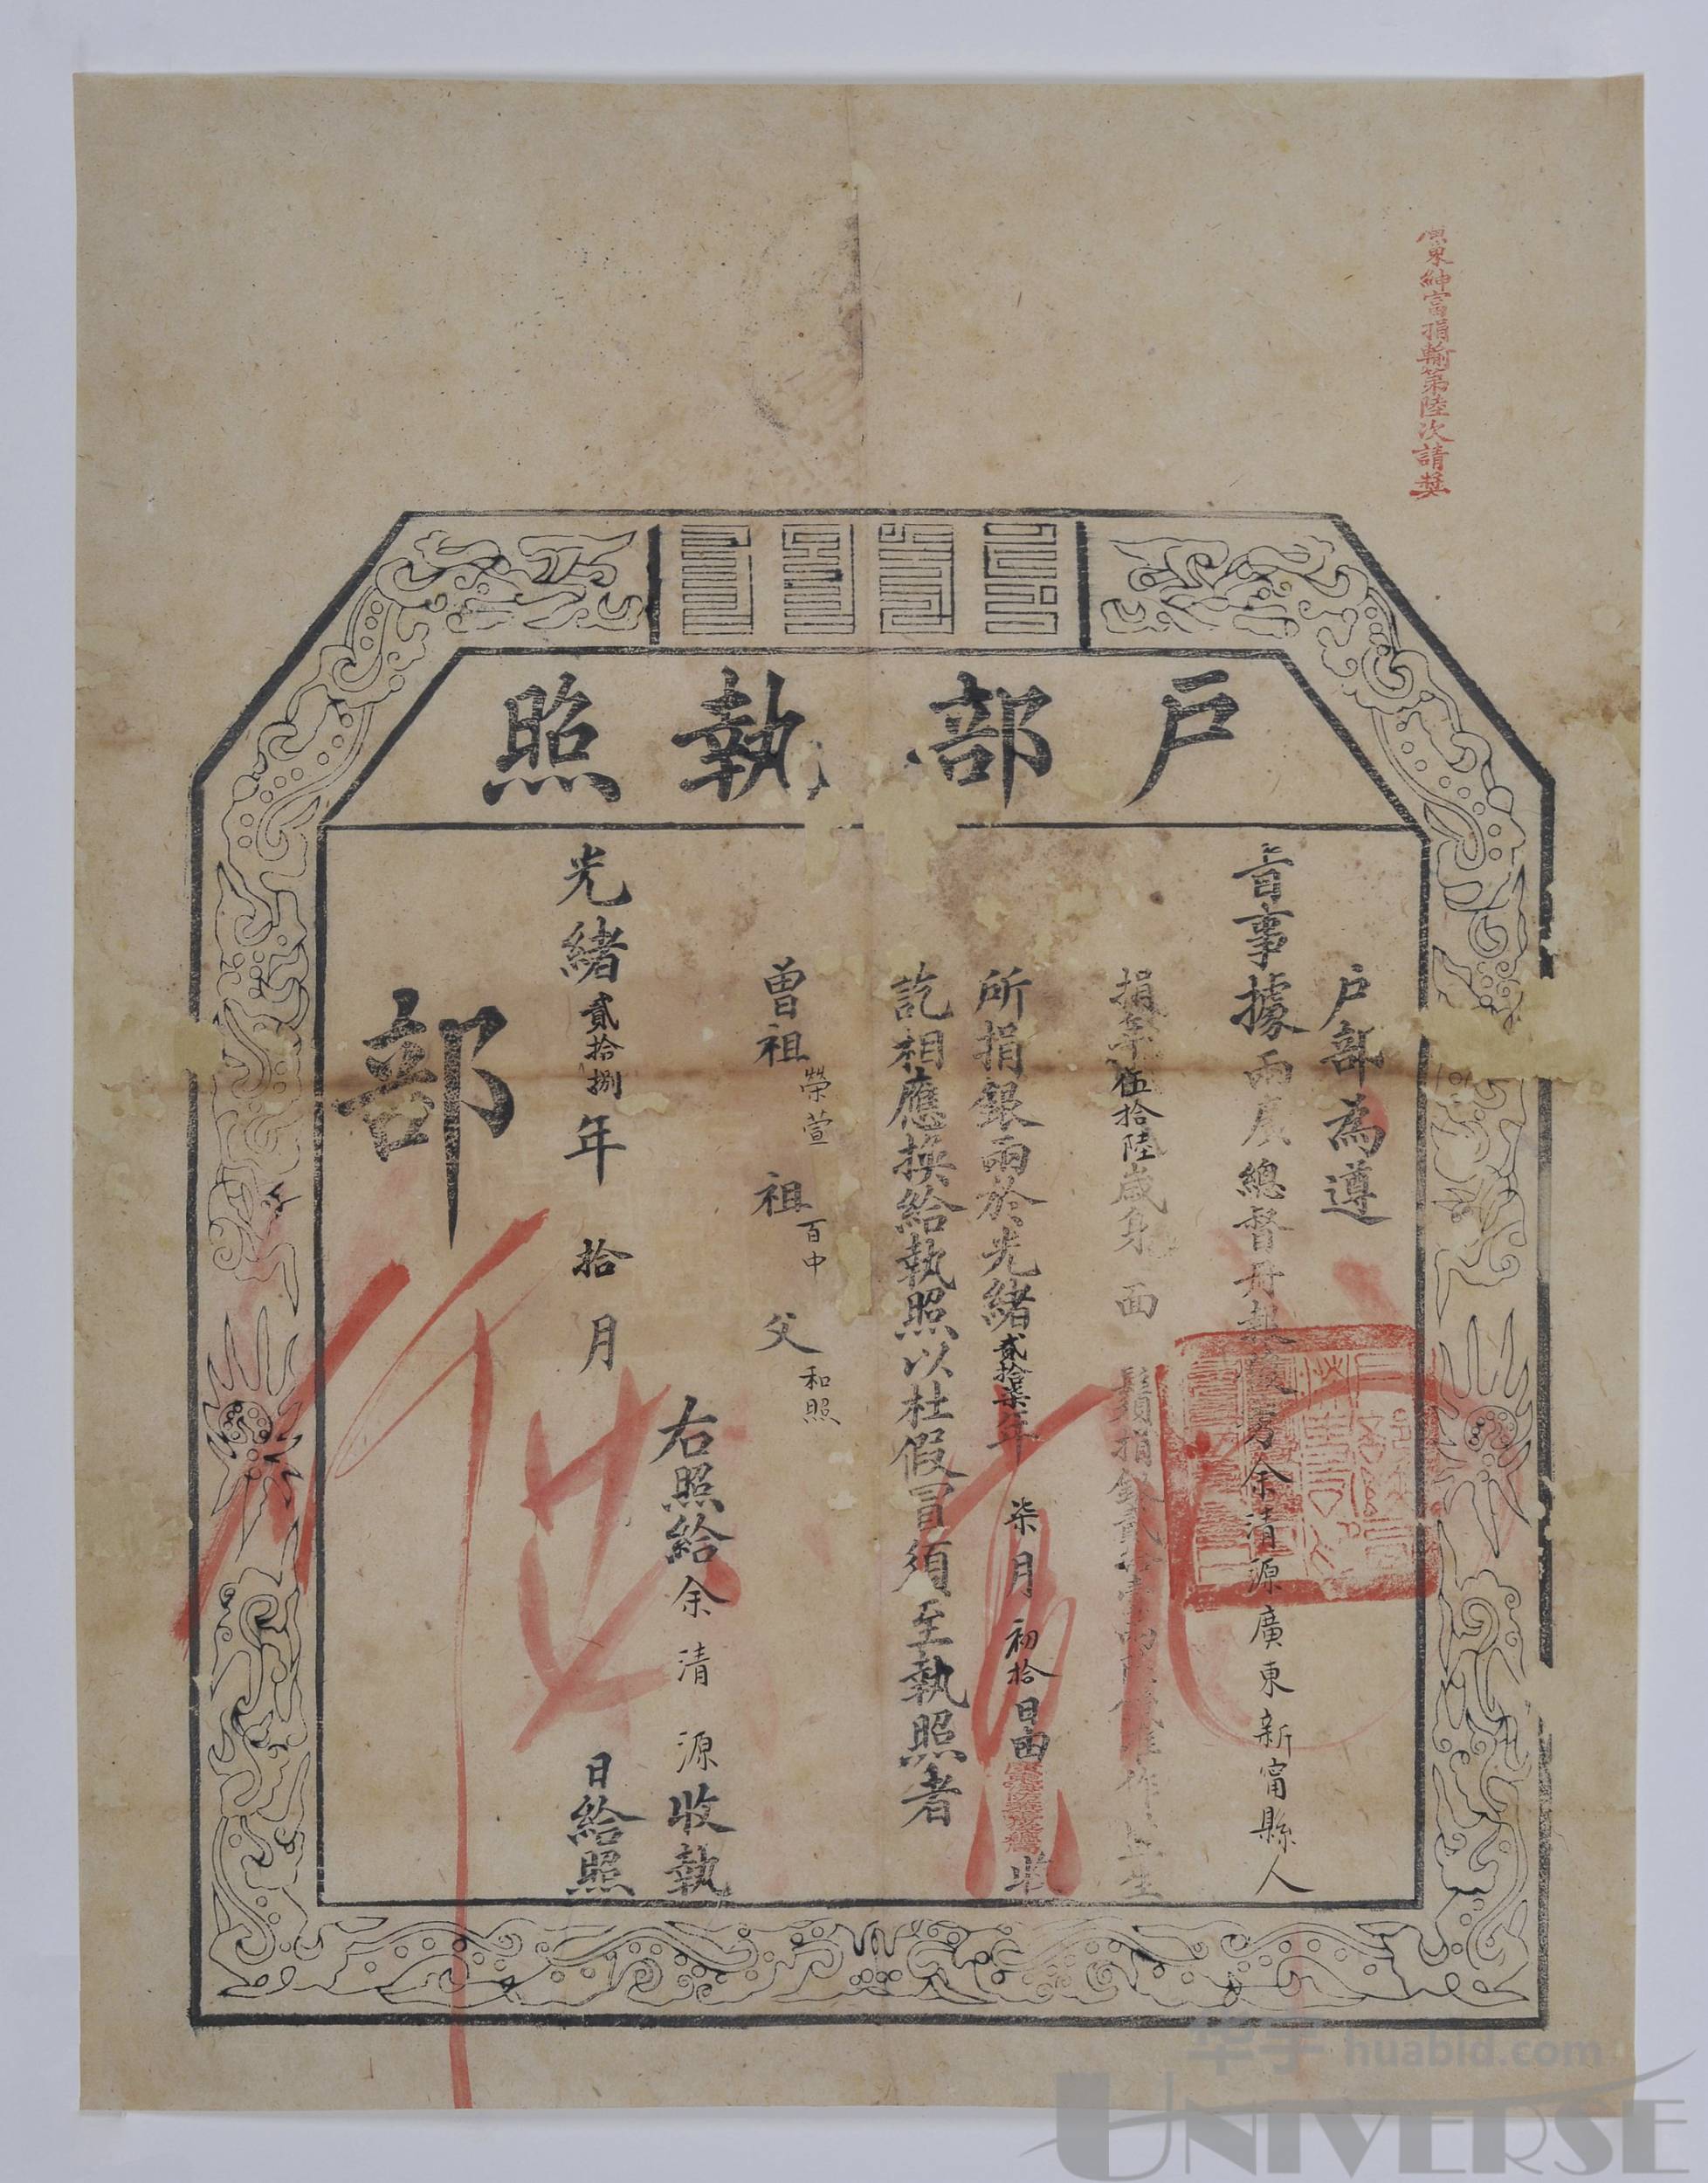 廣東紳富捐輸第陸次請獎
户部執照
户部為遵
旨事據兩広總督
余清源廣東新甯縣人
捐年伍拾陸歲身 面 鬚捐銀貳拾
監生
所捐銀兩於光緒貳拾柒年柒月初拾日由
收
訖相應換給執照以杜假冒須至執照者
曾祖榮萱 祖百中 父和照
右照給余清源收執
光緒貳拾捌年拾月 日給照
部
行
华宇 huabid.com
UNIVERSE